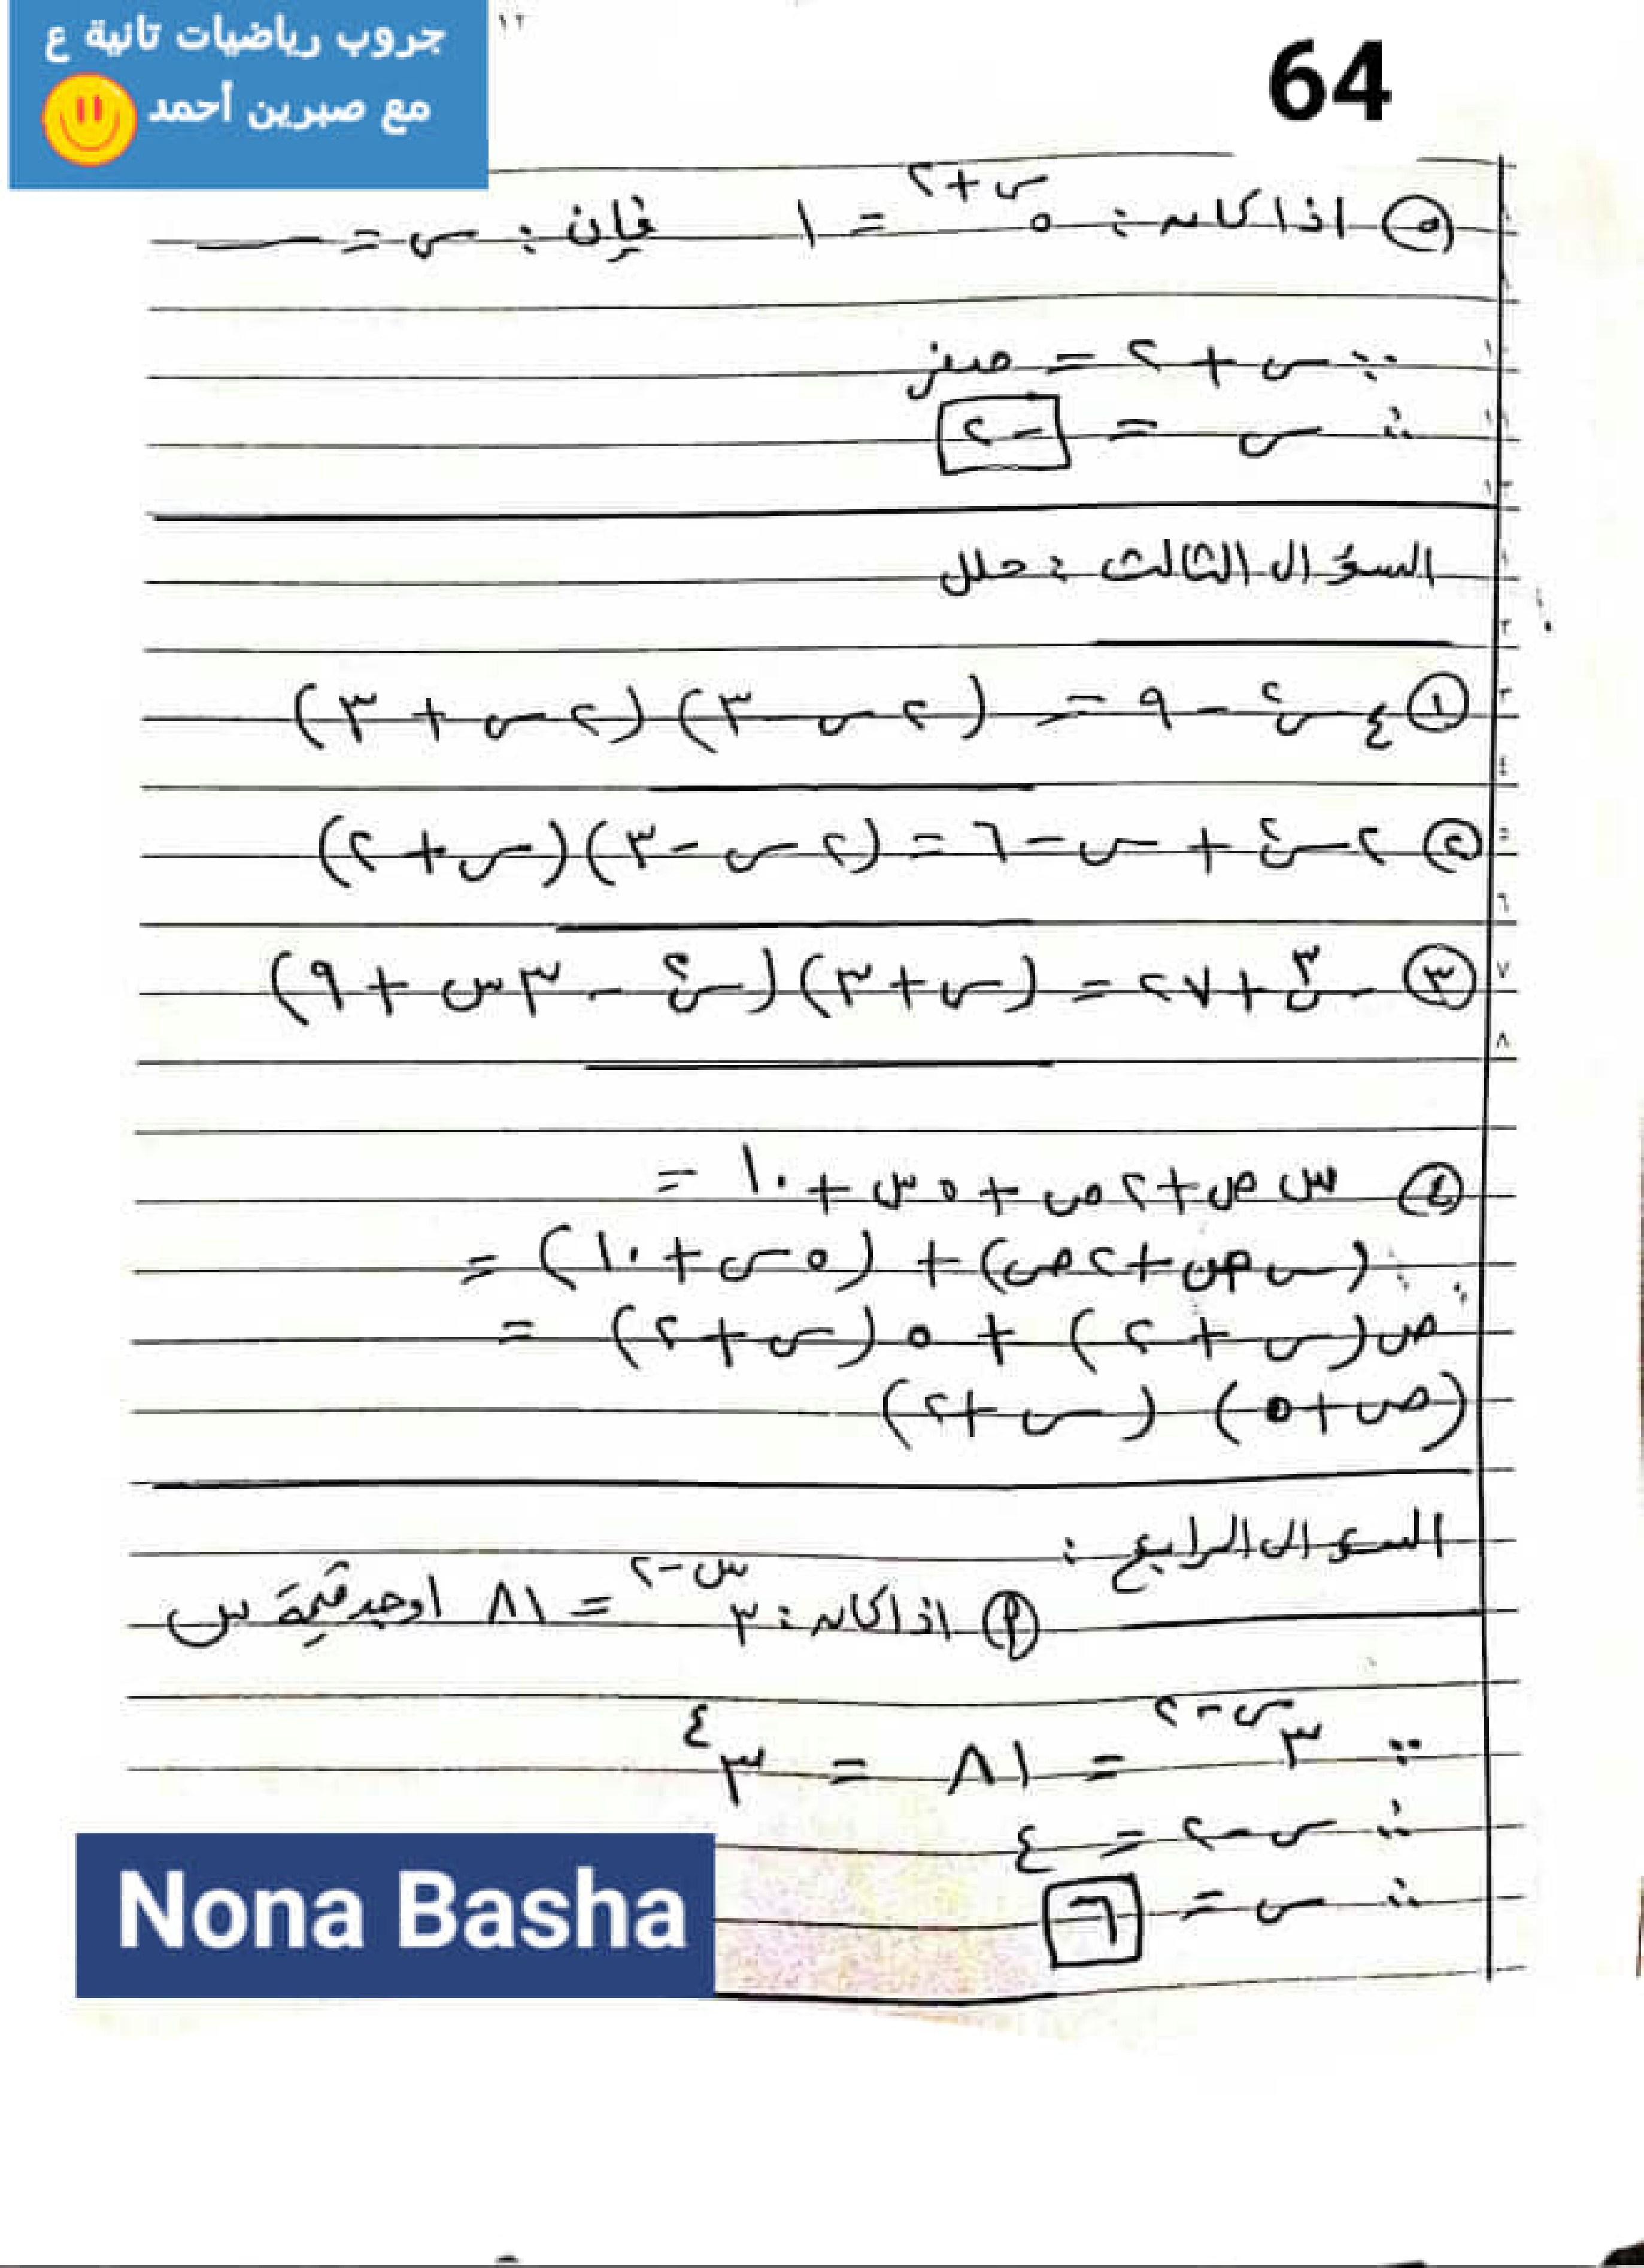 جروب رياضيات تانية ع
مع صبرين أحمد
64
٥ اذا كان : ٥^(س+٢) = ١ فإن : س =
∵ س + ٢ = صفر
∴ س = -٢
السؤال الثالث : حلل
١ ٤س² - ٩ = (٢س - ٣)(٢س + ٣)
٢ ٢س² + س - ٦ = (٢س - ٣)(س + ٢)
٣ س³ + ٢٧ = (س + ٣)(س² - ٣س + ٩)
٤ س ص + ٢ص + ٥س + ١٠ =
(س ص + ٢ص) + (٥س + ١٠) =
ص(س + ٢) + ٥(س + ٢) =
(ص + ٥)(س + ٢)
السؤال الرابع :
أ اذا كان : ٣^(س-٢) = ٨١ اوجد قيمة س
∵ ٣^(س-٢) = ٨١ = ٣^٤
∴ س - ٢ = ٤
∴ س = ٦
Nona Basha